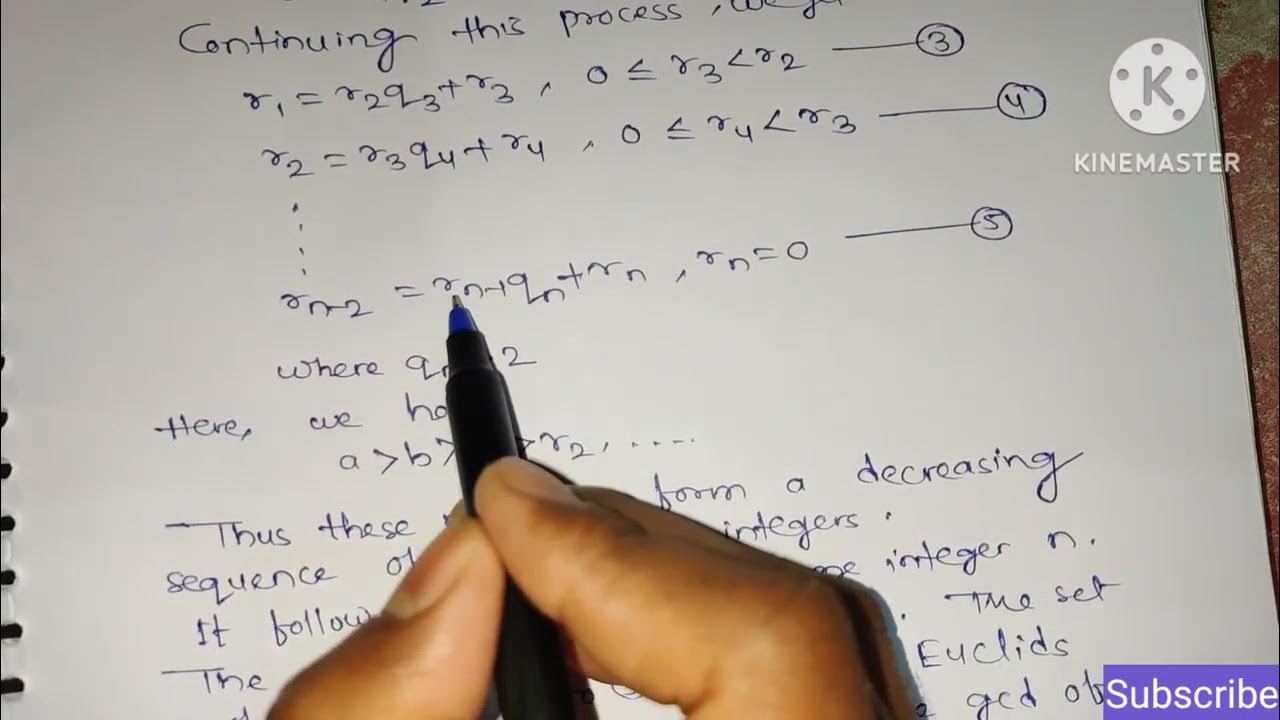 Continuing this process, we
r₁ = r₂q₃ + r₃ , 0 ≤ r₃ < r₂ ③
r₂ = r₃q₄ + r₄ , 0 ≤ r₄ < r₃ ④
r_{n-2} = r_{n-1} q_n + r_n , r_n = 0 ⑤
where 2
Here, we
a > b > r₂, .....
Thus these form a decreasing
sequence integers.
It integer n.
The set
The Euclids
gcd
K
KINEMASTER
Subscribe